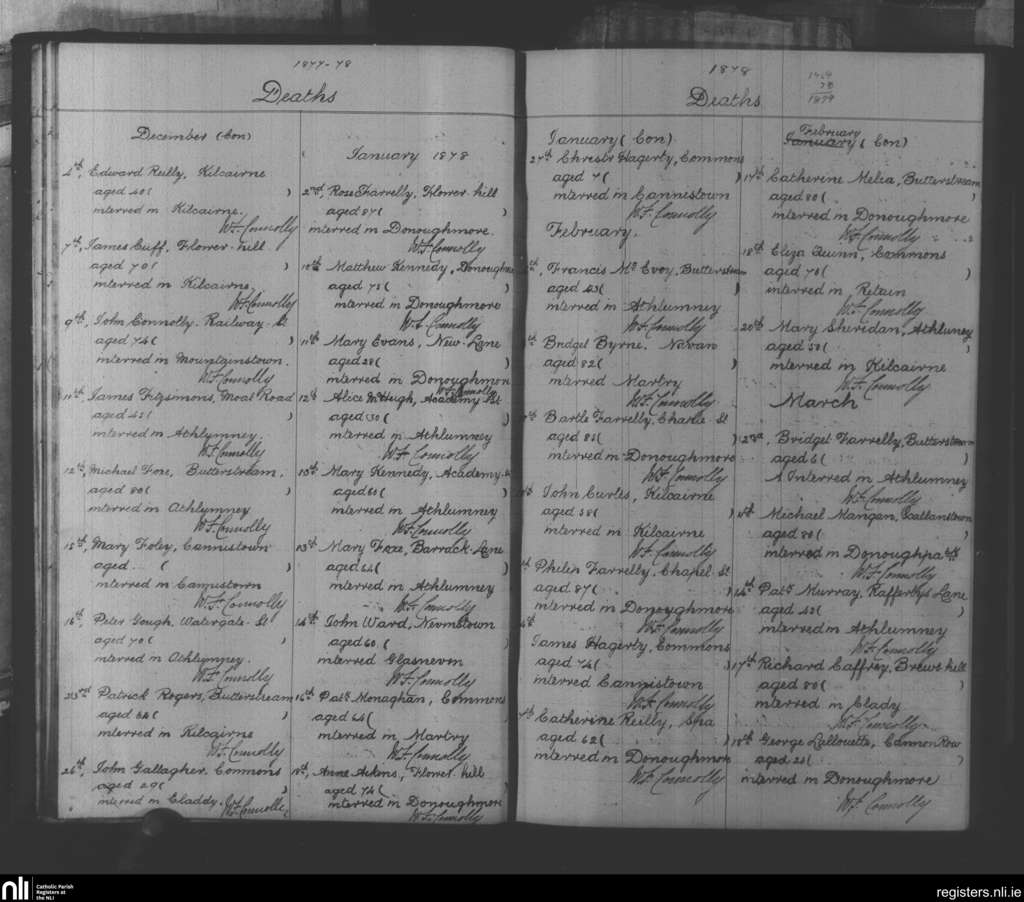 1877-78
Deaths
December (Con)
4th, Edward Reilly, Kilcairne
aged 40( )
interred in Kilcairne.
W.F. Connolly
7th, James Cuff, Flower-hill
aged 70( )
interred in Kilcairne,
W.F. Connolly
9th, John Connolly. Railway-St
aged 74( )
interred in Mountainstown.
W.F. Connolly
James Fitzsimons, Moat Road
interred in Athlymney.
W.F. Connolly
12th, Michael Foxe, Butterstream,
aged 80( )
interred in Athlymney
W.F. Connolly
15th, Mary Foley, Cannistown
aged (
interred in Cannistown
W.F. Connolly
16th, Peter Gough. Watergate-St
aged 70( )
interred in Athlymney.
W.F. Connolly
23rd Patrick Rogers, Butterstream
aged 64( )
interred in Kilcairne
W.F. Connolly
26th, John Gallagher. Commons
aged 29( )
interred in Claddy. W.F. Connolly
January 1878
2nd, Rose Farrelly, Flower-hill
aged 87( )
interred in Donoughmore.
W.F. Connolly
10th Matthew Kennedy, Donoughmore
aged 75( )
interred in Donoughmore
W.F. Connolly
11th Mary Evans, New-Lane
aged 28( )
interred in Donoughmore
W.F. Connolly
12th Alice McHugh, Academy St
interred in Athlumney
W.F. Connolly
13th Mary Kennedy, Academy-St
aged 65( )
interred in Athlumney
W.F. Connolly
13th Mary Foxe, Barrack-Lane
aged 64( )
interred in Athlumney
W.F. Connolly
14th John Ward,
aged 60 ( )
interred Glasneven
W.F. Connolly
16th Patk Monaghan, Commons
aged 64( )
interred in Martry
W.F. Connolly
18th, Anne Askins, Flower-hill
aged 74( )
interred in Donoughmore
W.F. Connolly
1878
Deaths
1829
78
1879
January ( Con)
27th Christr Hagerty, Commons
aged 7( )
interred in Cannistown
W.F. Connolly
February.
Francis McEvoy, Butterstream
aged 43( )
interred in Athlumney
W.F. Connolly
Bridget Byrne. Navan
aged 82( )
interred Martry
W.F. Connolly
Bartle Farrelly, Charle-St
aged 85( )
interred in Donoughmore
W.F. Connolly
John Curtes, Kilcairne
aged 58( )
interred in Kilcairne
W.F. Connolly
Philip Farrelly, Chapel-St
aged 87( )
interred in Donoughmore
W.F. Connolly
James Hagerty, Commons
aged 74( )
interred Cannistown
W.F. Connolly
Catherine Reilly, Spa
aged 62( )
interred in Donoughmore
W.F. Connolly
February
January ( Con)
17th Catherine Melia, Butterstream
aged 80( )
interred in Donoughmore
W.F. Connolly
18th Eliza Quinn, Commons
aged 70( )
interred in Retain
W.F. Connolly
20th Mary Sheridan, Athluney
aged 50( )
interred in Kilcairne
W.F. Connolly
March
Bridget Farrelly, Butterstream
aged 6( )
Interred in Athlumney
W.F. Connolly
Michael Mangan,
aged 80( )
interred in
W.F. Connolly
14th Patk Murray, Rafferty's Lane
aged 43( )
interred in Athlumney
W.F. Connolly
17th Richard Caffrey, Brews hill
aged 80( )
interred in Clady
W.F. Connolly
18th George Lallouette, Cannon Row
aged 25( )
interred in Donoughmore
W.F. Connolly
nli
Catholic Parish
Registers at
the NLI
registers.nli.ie